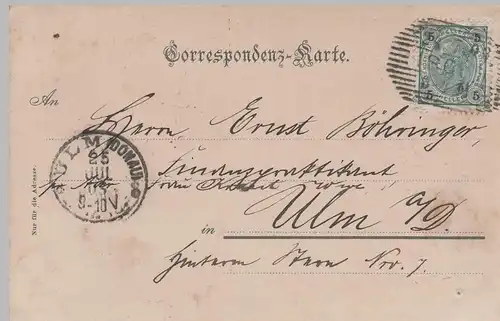 Correspondenz-Karte.
An
Herrn Ernst Böhringer,
Finanzpraktikant
Wwe
in Ulm a/D.
Hinterm Stern Nro. 7.
Nur für die Adresse.
ULM (DONAU)
25
JUL
9-10V
5 5
5 5